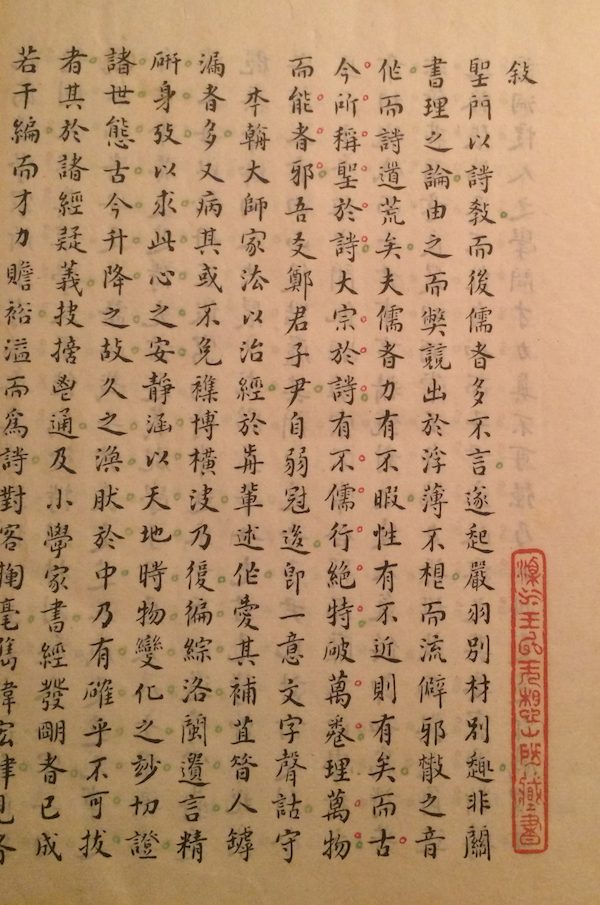 敍
聖門以詩敎而後儒者多不言遂起嚴羽別材別趣非關
書理之論由之而弊競出於浮薄不根而流僻邪散之音
作而詩道荒矣夫儒者力有不暇性有不近則有矣而古
今所稱聖於詩大宗於詩有不儒行絕特破萬卷理萬物
而能者邪吾友鄭君子尹自弱冠後卽一意文字聲詁守
本朝大師家法以治經於前輩述作愛其補苴昔人罅
漏者多又病其或不免襍博橫決乃復徧綜洛閩遺言精
硏身攷以求此心之安靜涵以天地時物變化之妙切證
諸世態古今升降之故久之渙肰於中乃有確乎不可拔
者其於諸經疑義披鬯通及小學家書經發明者已成
若干編而才力贍裕溢而爲詩對客掬毫雋偉宏
藏書